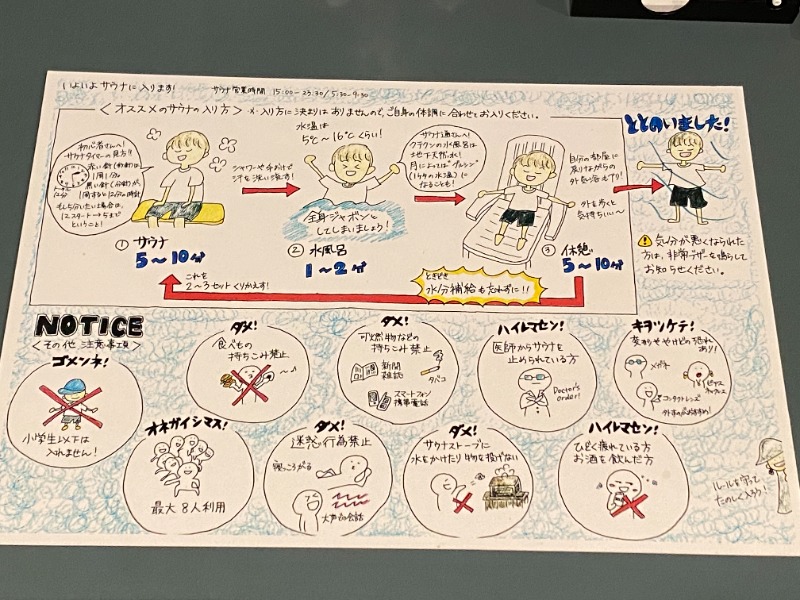 いよいよサウナに入ります!
サウナ営業時間 15:00-23:30/5:30-9:30
<オススメのサウナの入り方> ※入り方に決まりはありませんので、ご自身の体調に合わせてお入りください。
初心者さんへ!
サウナタイマーの見方!!
赤い針(秒針)は
1周1分
黒い針(分針)が
1周すると12分の時計
もし5分いたい場合は、
12スタート→5まで
ということ!
① サウナ
5〜10分
シャワーやかけ水で
汗を洗い流す!
水温は
5℃〜16℃くらい!
全身ジャボンと
してしまいましょう!
② 水風呂
1〜2分
サウナ通さんへ!
クラウンの水風呂は
地下天然水!
月によっては"グルシン"
(1ケタの水温)に
なることも!
③ 休憩
5〜10分
これを
2〜3セットくりかえす!
ときどき
水分補給も忘れずに!!
自分の部屋に
外を歩くと
気持ちいい〜
ととのいました!
気分が悪くなられた
方は、非常ブザーを鳴らして
お知らせください。
NOTICE
<その他 注意事項>
ゴメンネ!
小学生以下は
入れません!
ダメ!
食べもの
持ちこみ禁止
ダメ!
可燃物などの
持ちこみ禁止
新聞
雑誌
タバコ
スマートフォン
携帯電話
ハイレマセン!
医師からサウナを
止められている方
Doctor's
order!
キヲツケテ!
変形やヤケドの恐れ
あり!
メガネ
ピアス
ネックレス
コンタクトレンズ
オネガイシマス!
最大8人利用
ダメ!
迷惑行為禁止
寝ころがる
大声での会話
ダメ!
サウナストーブに
水をかけたり物を投げない
ハイレマセン!
ひどく疲れている方
お酒を飲んだ方
ルールを守って
たのしく入ろう!